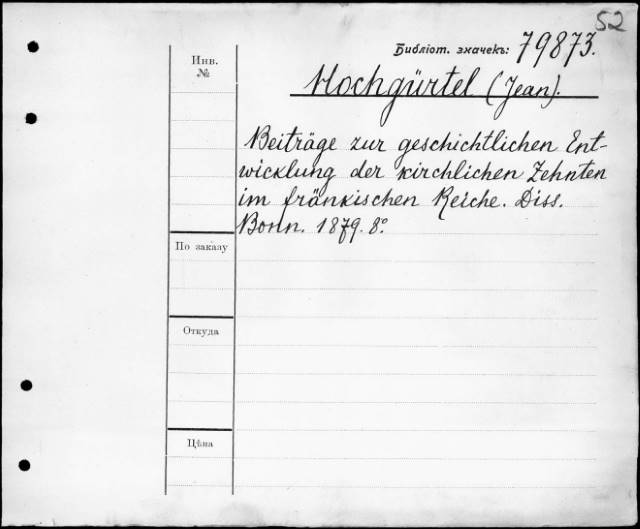 52
Библіот. значекъ: 79873.
Инв.
№
Hochgürtel (Jean).
Beiträge zur geschichtlichen Ent-
wicklung der kirchlichen Zehnten
im fränkischen Reiche. Diss.
Bonn. 1879. 8°.
По заказу
Откуда
Цѣна